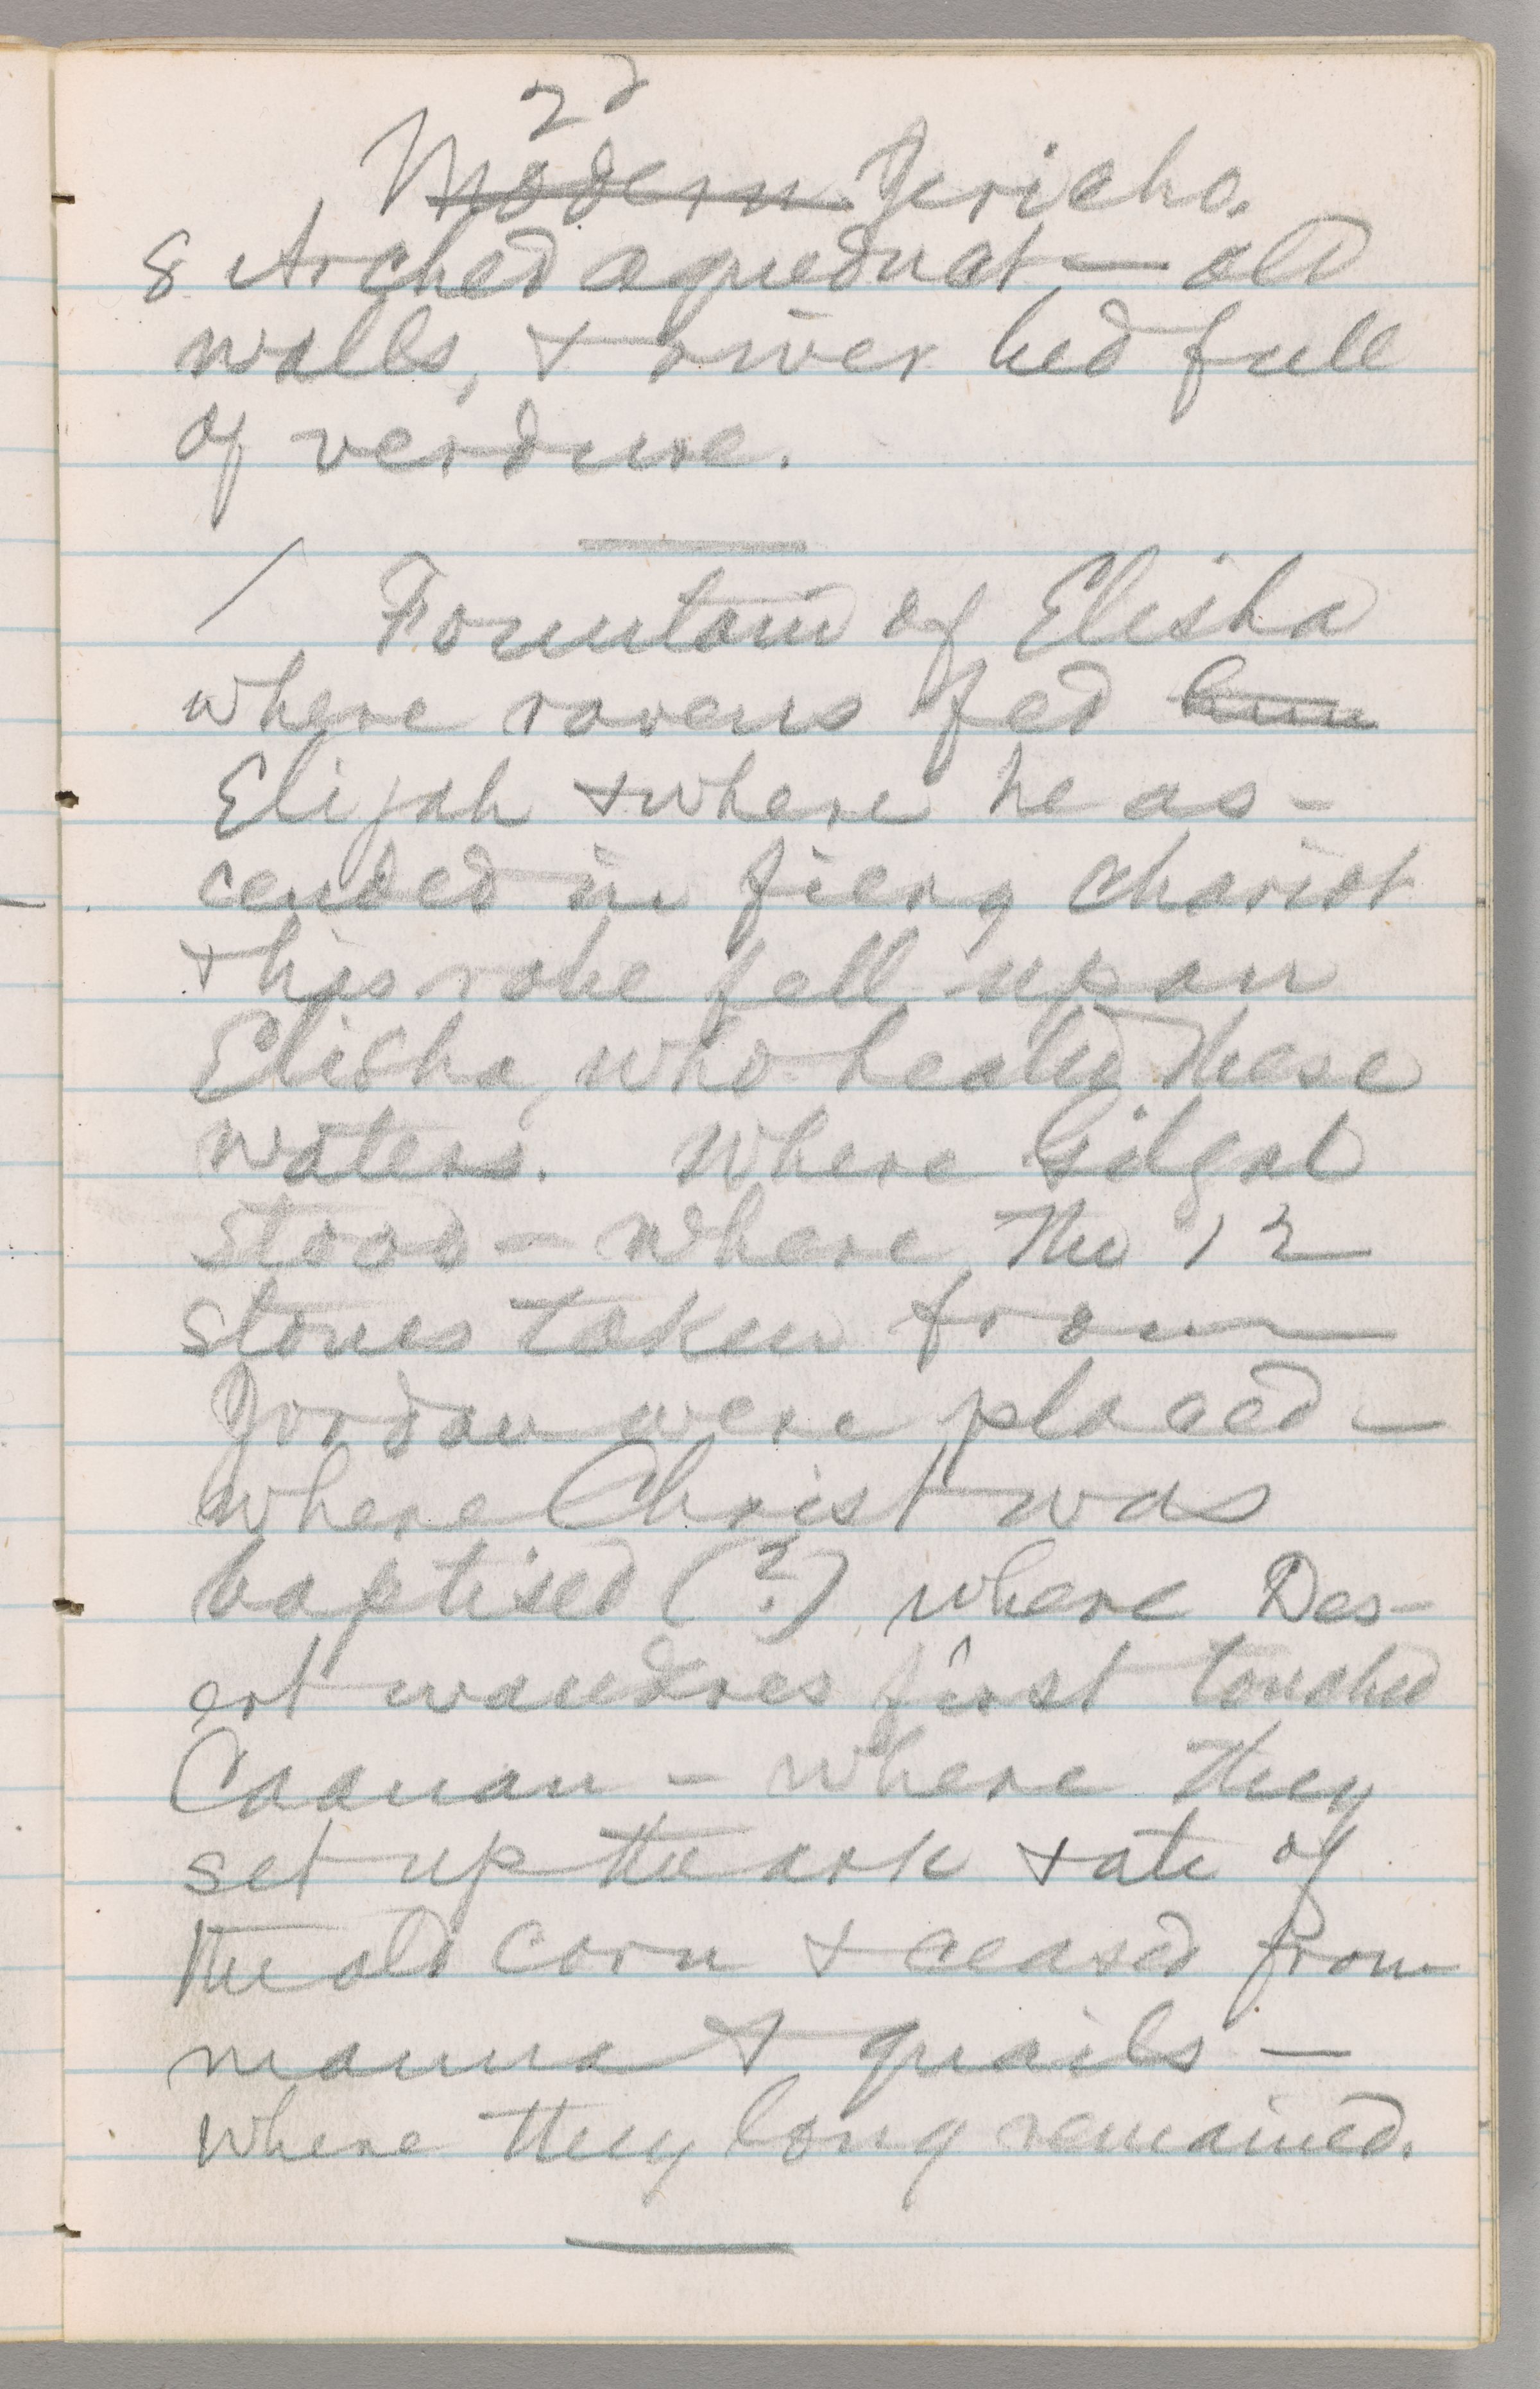 2d
Modern Jericho.
8 Arched aqueduct — old
walls, & river bed full
of verdure.
/ Fountain of Elisha
where ravens fed him
Elijah & where he as-
cended in fiery chariot
& his robe fell upon
Elisha, who healed these
waters. Where Gilgal
stood — where the 12
stones taken from
Jordan were placed —
where Christ was
baptised (?) where Des-
ert wandres first touched
Canaan — where they
set up the ark & ate of
the old corn & ceased from
manna & quails —
where they long remained.